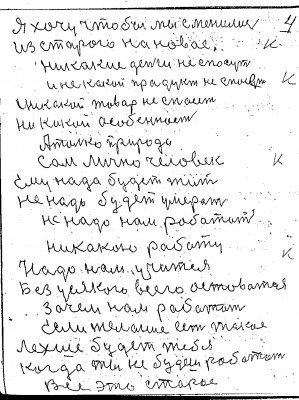 Я хочу чтобы мы сменились 4
из старого на новое, К
никакие деньги не спосут
и не какой продукт не спосет К
Никакой товар не спосет
ни какой особенност
А только природа
Сам лично человек К
Ему нада будет жит
не надь будет умерат
не надо нам работат
никакою работу К
Надо нам учатся
Без усякого всего остоватся
Зачем нам работат
Если желание ест такое
Лехше будет тебя
когда ты не будеш работат
Все это старое